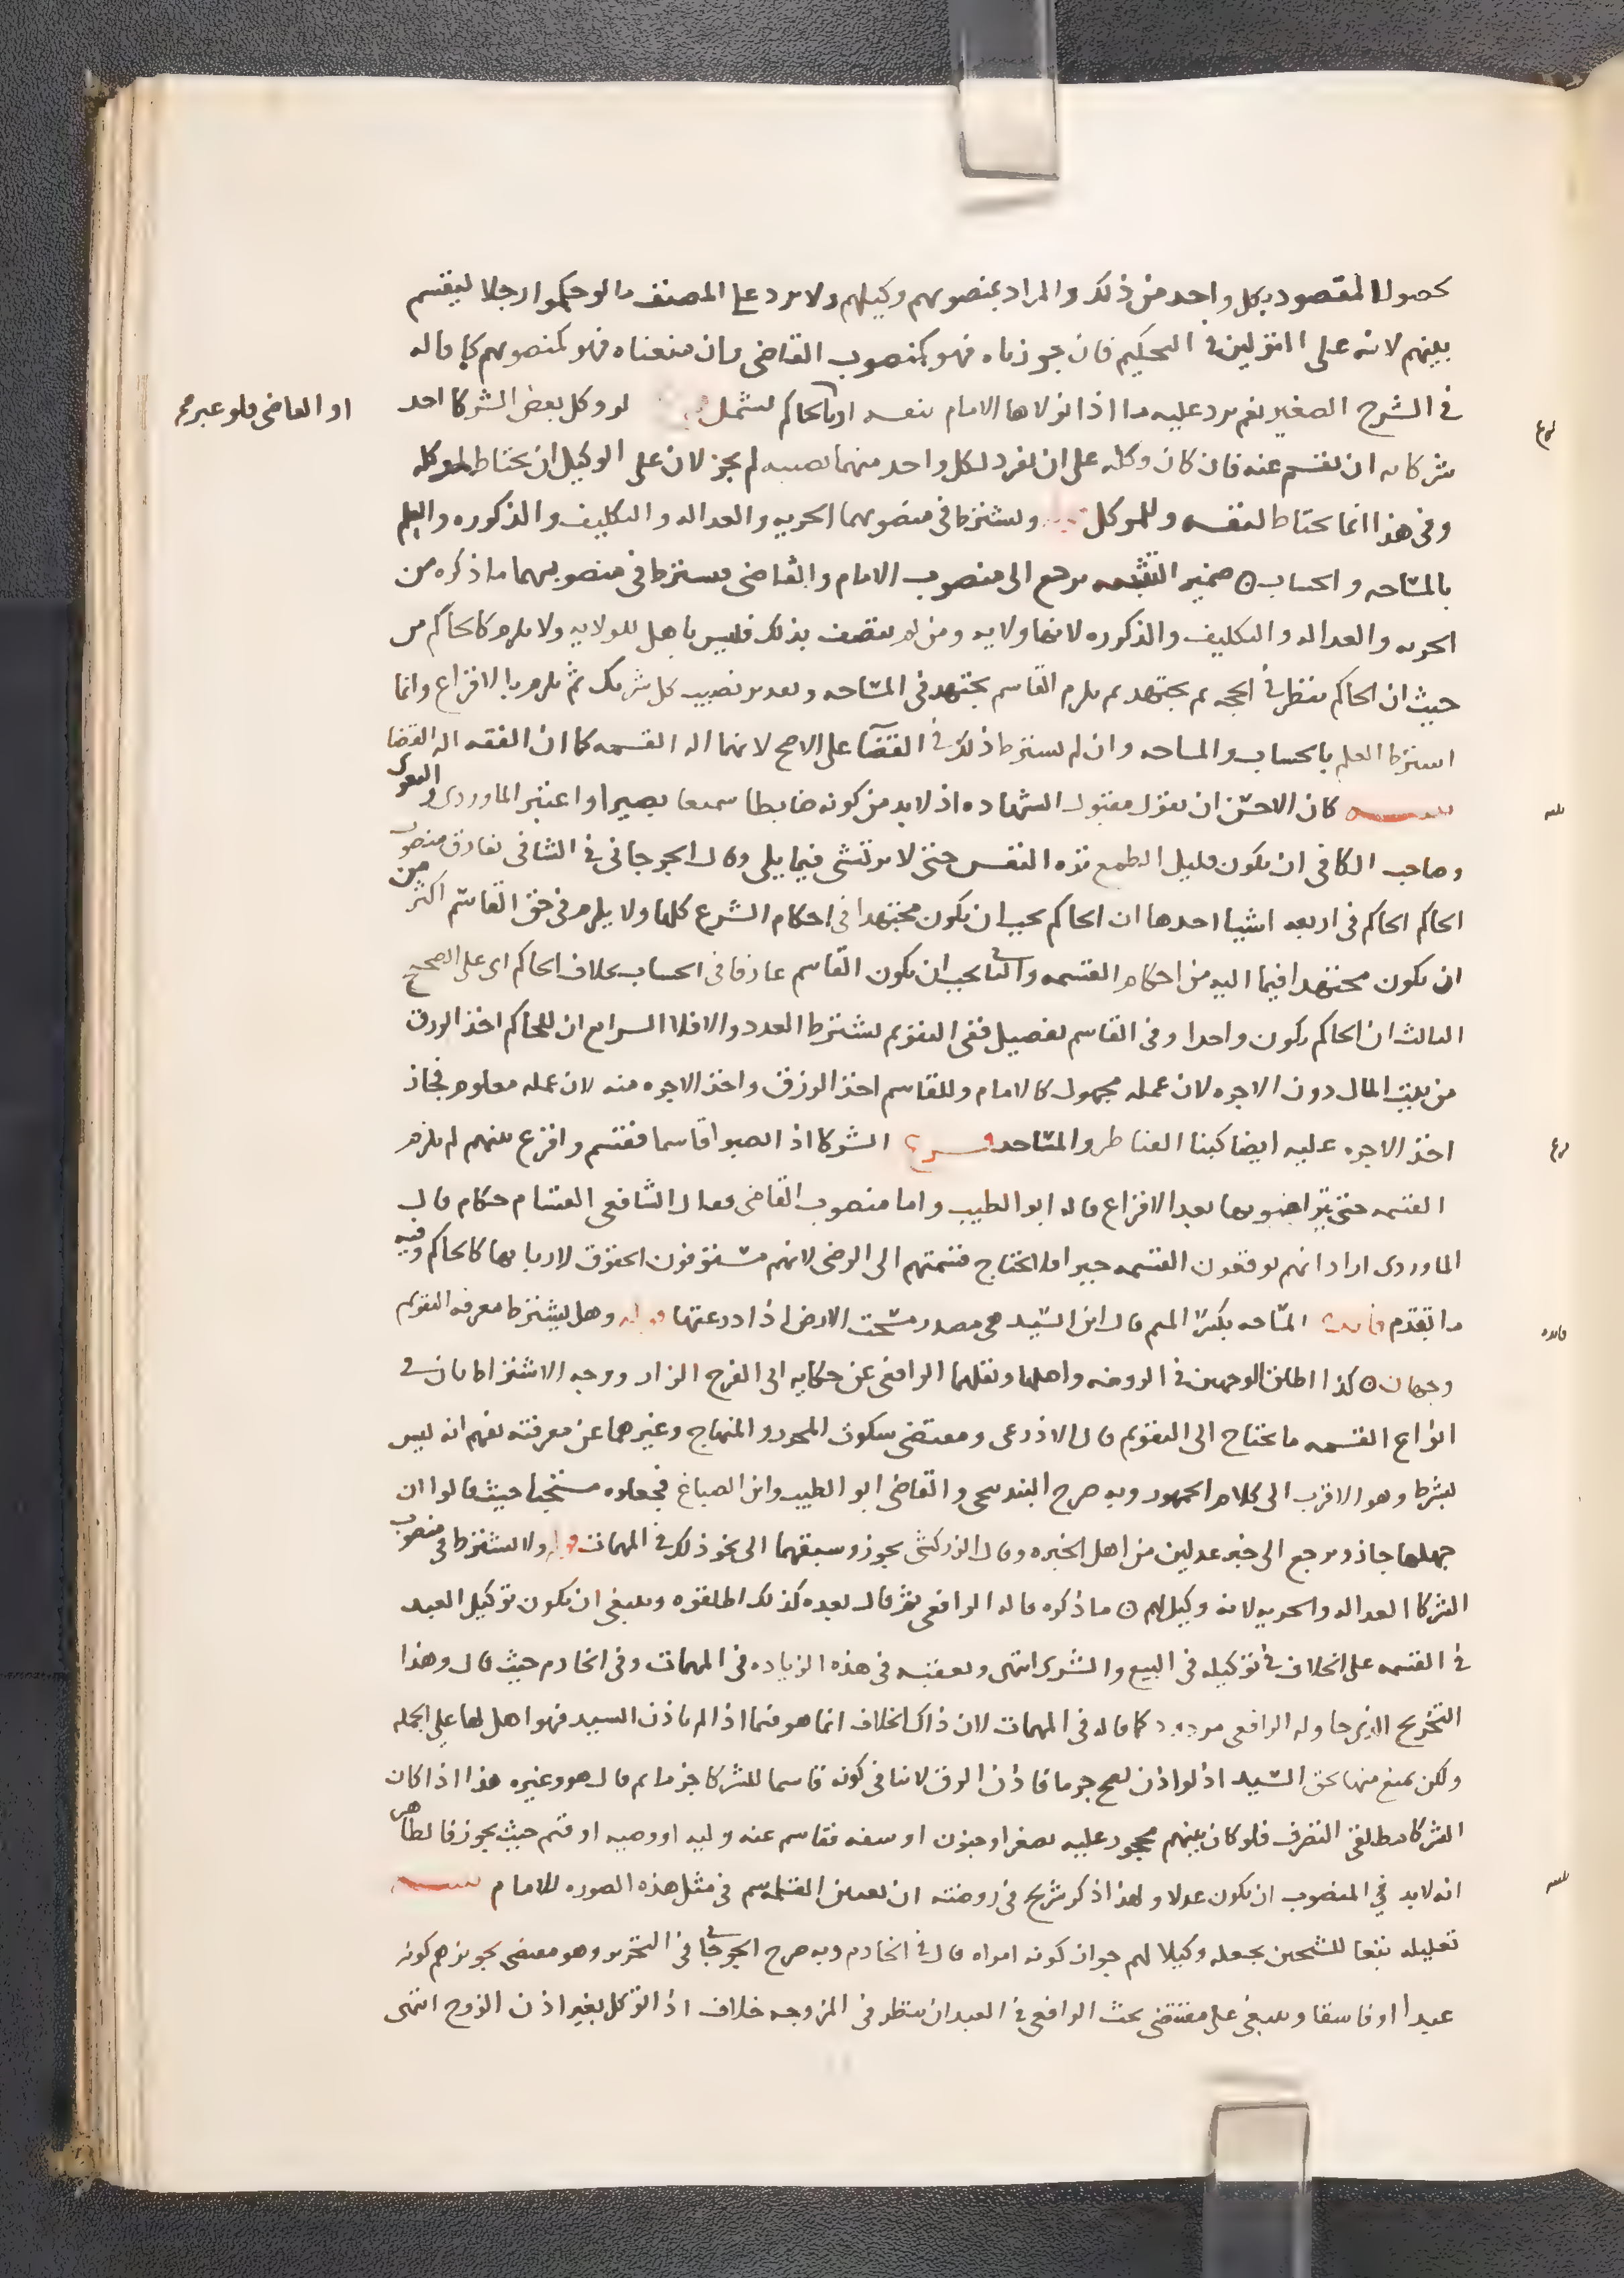 لحصول المقصود بكل واحد من ذلك والمراد بمنصوبهم وكيلهم ولا يرد على المصنف ما لو حكموا رجلا ليقسم
بينهم لانه على القولين في التحكيم فان جوزناه فهو كمنصوب القاضي وان منعناه فهو كمنصوبهم كما قاله
في الشرح الصغير نعم يرد عليه ما اذا تولاها الامام بنفسه او الحاكم لو وكل بعض الشركا احد
او القاضي فلو عبر
فرع
شركايه ان يقسم عنه فان كان وكله على ان يفرد لكل واحد منهما نصيبه لم يجز لان على الوكيل ان يحتاط لموكله
وفي هذا انما يحتاط لنفسه وللموكل ويشترط في منصوبهما الحريه والعداله والتكليف والذكوره والعلم
بالمساحه والحساب ضمير التثنيه يرجع الى منصوب الامام والقاضي فيشترط في منصوبيهما ما ذكره من
الحريه والعداله والتكليف والذكوره لانها ولايه ومن لم يتصف بذلك فليس باهل للولايه ولا يلزم كالحاكم من
حيث ان الحاكم ينظر في الحجه ثم يجتهد ثم يلزم القاسم يجتهد في المساحه وتقدير نصيب كل شريك ثم يلزم بالاقراع وانما
اشترط العلم بالحساب والمساحه وان لم يشترط ذلك في القضا على الاصح لانهما اله القسمه كما ان الفقه اله القضا
تنبيه كان الاحسن ان يقول مقبول الشهاده اذ لا بد من كونه ضابطا سميعا بصيرا واعتبر الماوردي والبغوي
تنبيه
وصاحب الكافي ان يكون قليل الطمع نزه النفس حتى لا يرتشي فيما يلي وقال الجرجاني في الشافي يفارق منصوب
الحاكم الحاكم في اربعه اشيا احدها ان الحاكم يجب ان يكون مجتهدا في احكام الشرع كلها ولا يلزم في حق القاسم اكثر من
ان يكون مجتهدا فيما اليه من احكام القسمه والثاني يجب ان يكون القاسم عارفا في الحساب بخلاف الحاكم اي على الصحيح
الثالث ان الحاكم يكون واحدا وفي القاسم تفصيل ففي التقويم يشترط العدد والا فلا الرابع ان للحاكم اخذ الرزق
من بيت المال دون الاجره لان عمله مجهول كالامام وللقاسم اخذ الرزق واخذ الاجره منه لان عمله معلوم فجاز
اخذ الاجره عليه ايضا كبنا القناطر والمساجد فرع الشركا اذا نصبوا قاسما فقسم واقرع بينهم لم تلزم
فرع
القسمه حتى يتراضوا بها بعد الاقراع قاله ابو الطيب واما منصوب القاضي فقال الشافعي القسام حكام قال
الماوردي اراد انهم يوقعون القسمه جبرا فلا تحتاج قسمتهم الى الرضى لانهم مستوفون الحقوق لاربابها كالحاكم وفيه
ما تقدم فايده المساحه بكسر الميم قال ابن السيد هي مصدر مسحت الارض اذا ذرعتها قوله وهل يشترط معرفه التقويم
فايده
وجهان كذا اطلق الوجهين في الروضه واصلها ونقلهما الرافعي عن حكايه ابي الفرج الزاز ووجه الاشتراط بان في
انواع القسمه ما يحتاج الى التقويم قال الاذرعي ومقتضى سكوت المحرر والمنهاج وغيرهما عن معرفته تفهم انه ليس
بشرط وهو الاقرب الى كلام الجمهور وبه صرح البندنيجي والقاضي ابو الطيب وابن الصباغ فجعلوه مستحبا حيث قالوا ان
جهلها جاز ويرجع الى خبر عدلين من اهل الخبره وقال الزركشي يجوز وسبقهما الى نحو ذلك في المهمات قوله ولا يشترط في منصوب
الشركا العداله والحريه لانه وكيل لهم ما ذكره قاله الرافعي ثم قال بعده كذلك اطلقوه وينبغي ان يكون توكيل العبد
في القسمه على الخلاف في توكيله في البيع والشرى انتهى وتعقبه في هذه الزياده في المهمات وفي الخادم حيث قال وهذا
التخريج الذي حاوله الرافعي مردود كما قاله في المهمات لان ذاك الخلاف انما هو فيما اذا لم ياذن السيد فهو اهل لها على الجمله
ولكن يمنع منها بحق السيد اذ لو اذن لصح جزما فاذن الرق لا ينافي كونه قاسما للشركا جزما ثم قال هو وغيره هذا اذا كان
الشركا مطلقي التصرف فلو كان بينهم محجور عليه بصغر او جنون او سفه فقاسم عنه وليه او وصيه او قيم حيث يجوز فالظاهر
انه لا بد في المنصوب ان يكون عدلا ولهذا ذكر شريح في روضته ان تعيين القاسم في مثل هذه الصوره للامام تنبيه
تنبيه
تعليله تبعا للشيخين بجعله وكيلا لهم جواز كونه امراه قال في الخادم وبه صرح الجرجاني في التحرير وهو مقتضى تجويزهم كونه
عبدا او فاسقا وينبغي على مقتضى بحث الرافعي في العبد ان ينظر في المزوجه خلاف اذا توكل بغير اذن الزوج انتهى